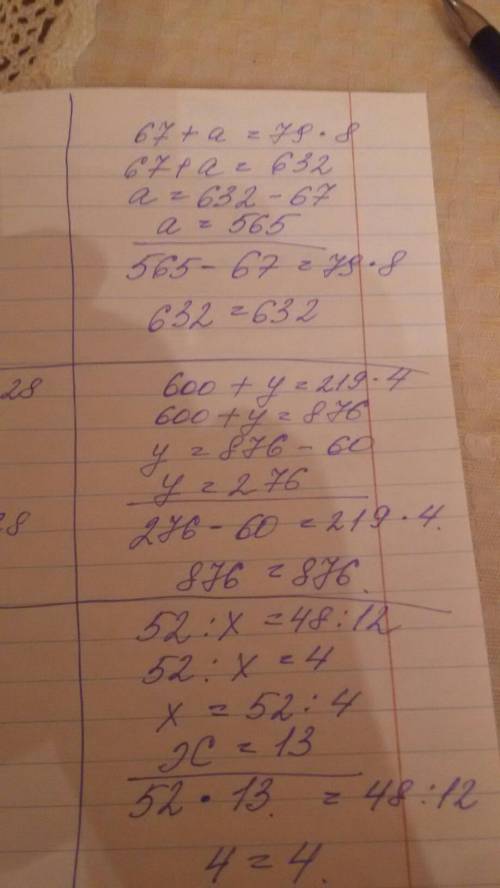 67 + a = 79 · 8
67 + a = 632
a = 632 - 67
a = 565
565 - 67 = 79 · 8
632 = 632
28
600 + y = 219 · 4
600 + y = 876
y = 876 - 60
y = 276
8
276 - 60 = 219 · 4.
876 = 876.
52 : x = 48 : 12
52 : x = 4
x = 52 : 4
x = 13
52 · 13. = 48 : 12
4 = 4.